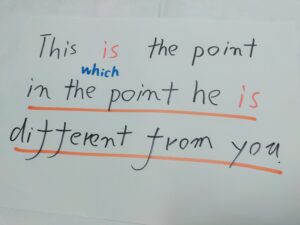 This is the point
which
in the point he is
different from you.